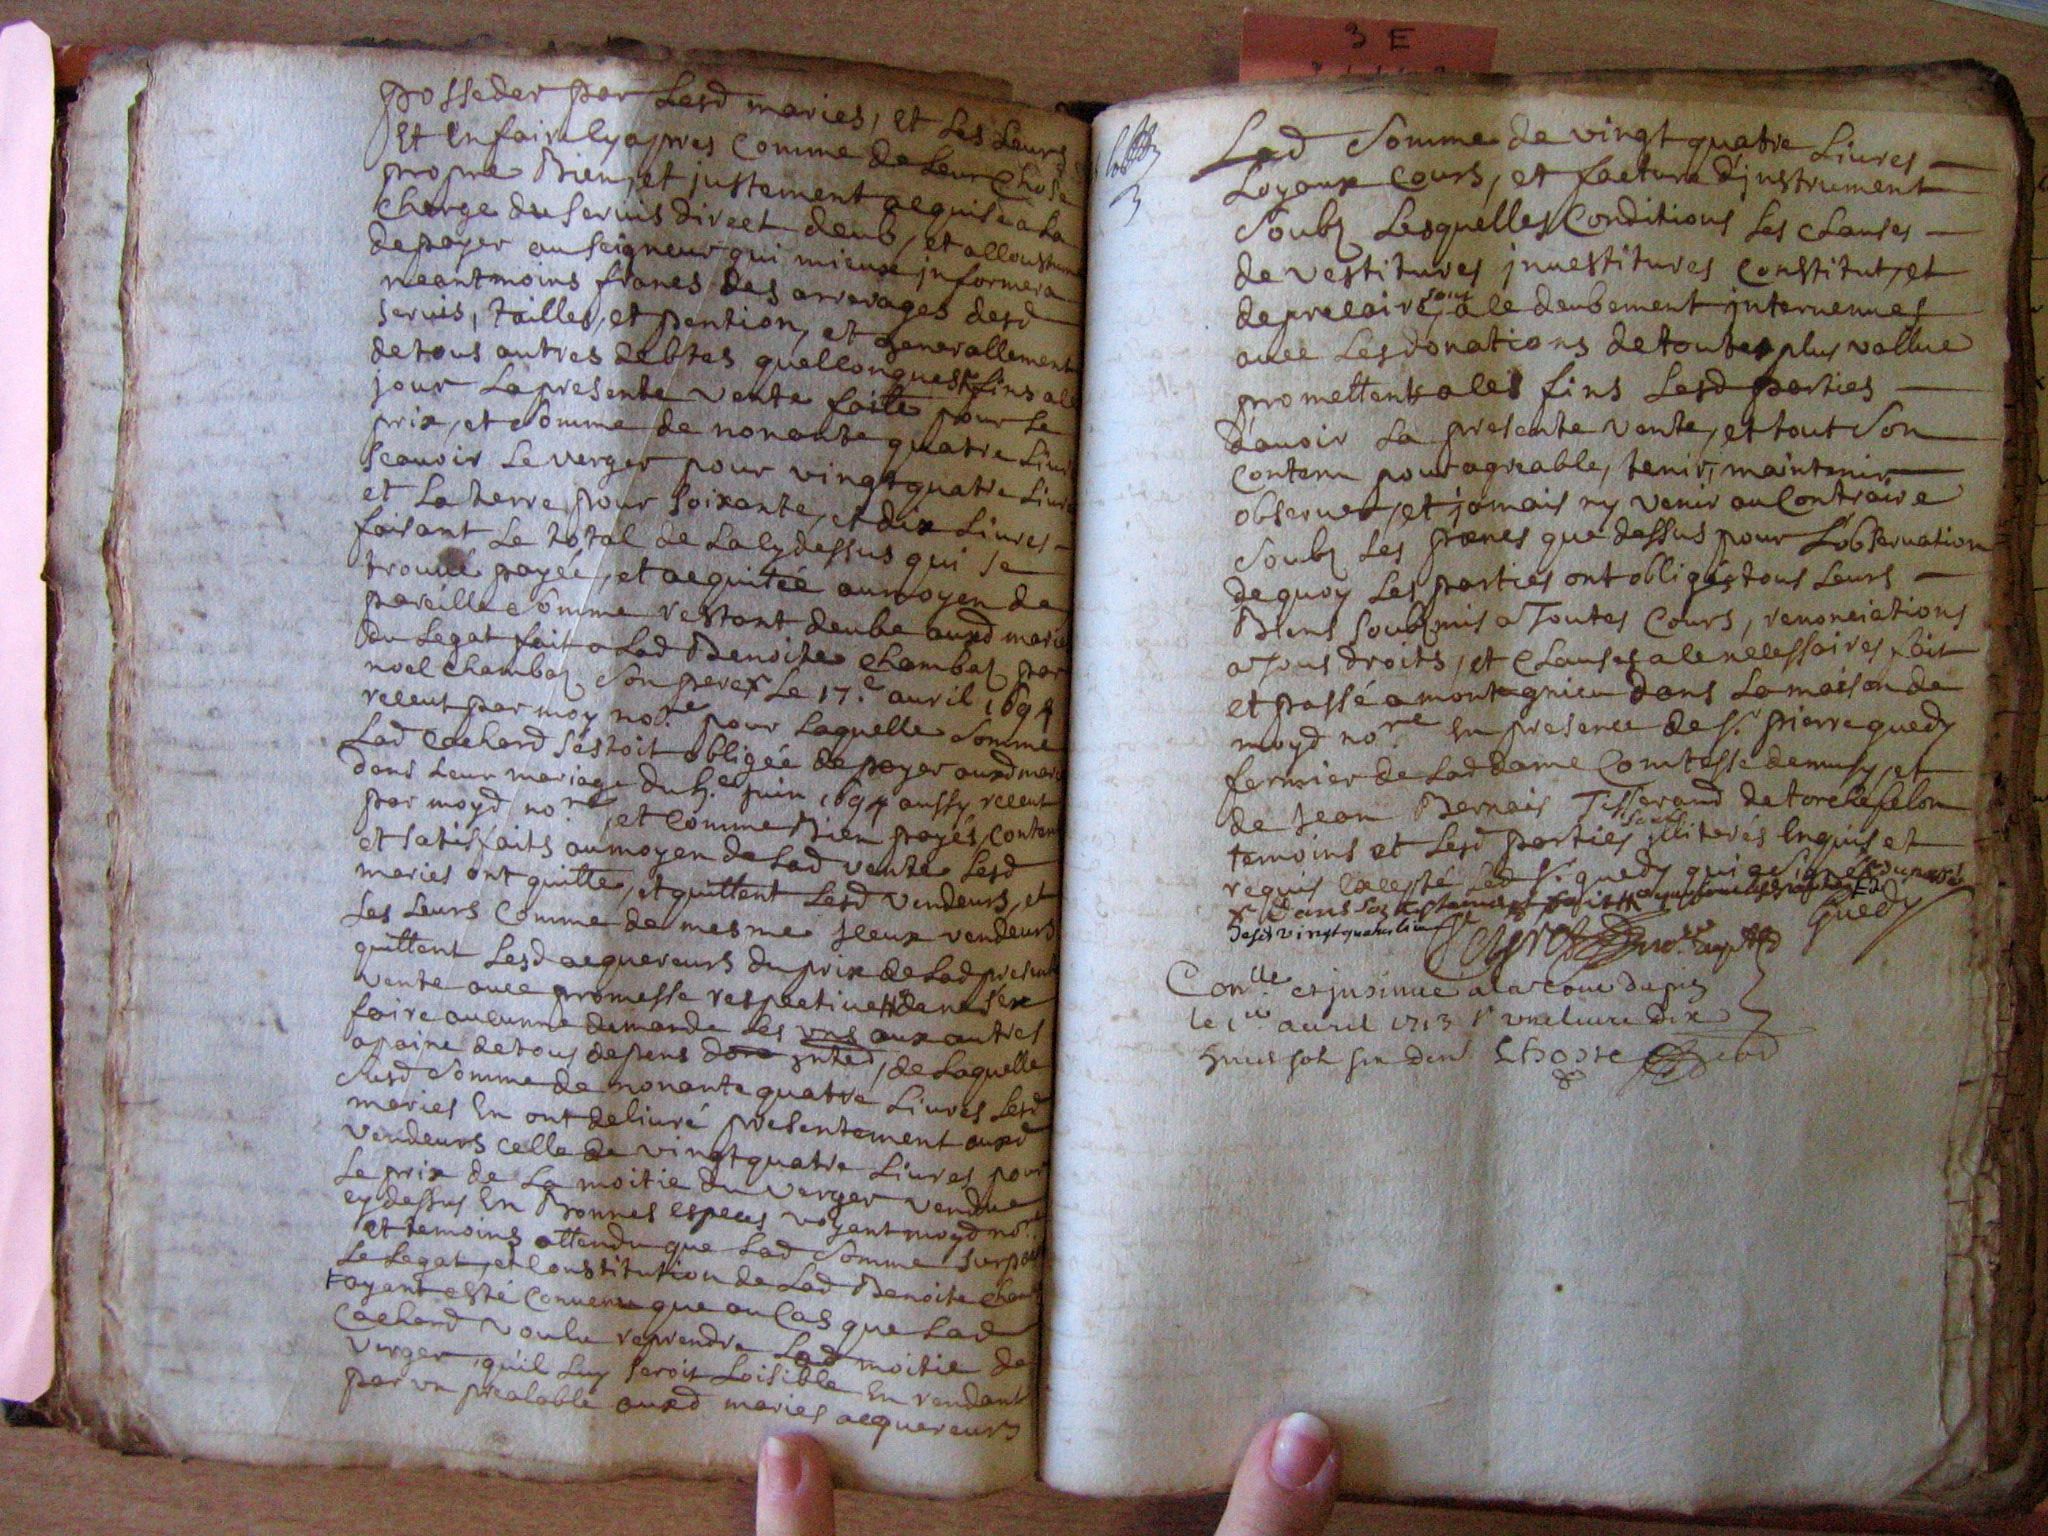 3 E
posseder par Lesd mariés, et Les Leurs
et en faire cy apres Comme de Leur Chose
propre Bien, et justement acquise a La
Charge du servis direct deub, et accoustumé
de payer au seigneur qui mieux informera
neantmoins francs des arrerages desd
servis, tailles, et pention, et generallement
de tous autres debtes quelconques
jour La presente vente faite pour Le
prix, et somme de nonante quatre Livres
scavoir Le verger pour vingt quatre Livres
et La terre pour soixante, et dix Livres
faisant Le total de La cy dessus qui se
trouve payée, et acquitée au moyen de
pareille somme restant deube auxd mariés
du Legat fait a Lad Benoite Chambaz par
noel Chambaz son pere x Le 17.e avril 1694
receut par moy no.re pour Laquelle somme
Lad Cachard s'estoit obligée de payer auxd mariés
dans Leur mariage du 5.e juin 1694 aussy receut
par moyd no.re, et comme Bien payés, Contents
et satisfaits au moyen de Lad vente Lesd
mariés ont quitté, et quittent Lesd vendeurs, et
Les Leurs Comme de mesme iceux vendeurs
quittent Lesd acquereurs du prix de Lad presente
vente avec promesse respective de ne s'en
faire aucunne demande Les uns aux autres
a paine de tous depens, de Laquelle
susd somme de nonante quatre Livres Lesd
mariés En ont delivré presentement auxd
vendeurs celle de vingt quatre Livres pour
Le prix de La moitié du verger vendue
cy dessus En Bonnes especes voyant moyd no.re
et temoins attendu que Lad somme surpasse
Le Legat, et Constitution de Lad Benoite Chambaz
+ ayant esté convenu que au Cas que Lad
Cachard voulu reprendre Lad moitié de
verger, qu'il Luy seroit Loisible En rendant
par un prealable auxd mariés acquereurs
Lad somme de vingt quatre Livres
Loyaux Cours, et facture d'instrument
soubz Lesquelles Conditions Les Clauses
de vestitures investitures Constitut, et
de precaire sont a ce deubement intervenues
avec Les donations de toutes plus vallue
promettent a ces fins Lesd parties
d'avoir La presente vente, et tout son
Contenu pour agreable, tenir, maintenir
observer, et jamais ny venir au Contraire
soubz Les peines que dessus pour L'observation
de quoy Les parties ont obligés tous Leurs
Biens soubzmis a Toutes Cours, renonciations
a Tous droits, et Clauses a ce necessaires fait
et passé a montagnieu dans La maison de
moyd no.re En presence de s.r pierre guedy
fermier de Lad dame Comtesse demusy, et
de Jean Bernais Tisserand de torchefelon
temoins et Lesd parties sont illiterés Enquis et
requis Excepté Led s.r guedy qui a signé
x dans son testament
desd vingt quatre livres
Guedy
Con.lle et insinué a la
le 1.er avril 1713 r une livre dix